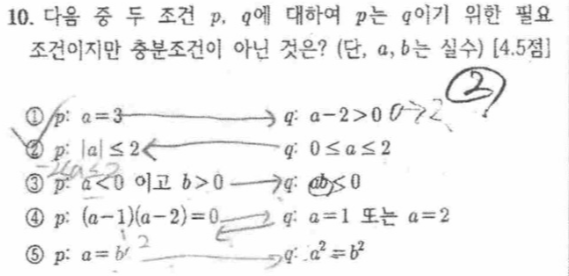 10. 다음 중 두 조건 p, q에 대하여 p는 q이기 위한 필요
조건이지만 충분조건이 아닌 것은? (단, a, b는 실수) [4.5점]
②
① p: a=3 → q: a-2>0 a>2
② p: |a|≤2 ← q: 0≤a≤2
-2≤a≤2
③ p: a<0 이고 b>0 → q: ab≤0
④ p: (a-1)(a-2)=0 q: a=1 또는 a=2
⑤ p: a=b → q: a²=b²